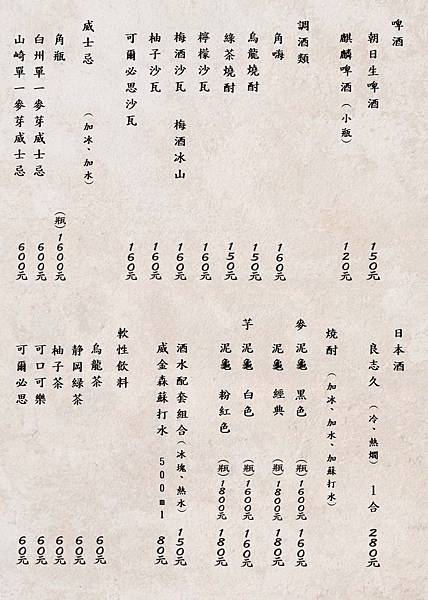 啤酒
朝日生啤酒 150元
麒麟啤酒（小瓶） 120元
調酒類
角嗨 160元
烏龍燒酎 150元
綠茶燒酎 150元
檸檬沙瓦 160元
梅酒沙瓦 梅酒冰山 160元
柚子沙瓦 160元
可爾必思沙瓦 160元
威士忌 （加冰、加水）
角瓶 （瓶）1600元
白州單一麥芽威士忌 600元
山崎單一麥芽威士忌 600元
日本酒
良志久 （冷、熱燗） 1合 280元
燒酎 （加冰、加水、加蘇打水）
麥 泥龜 黑色 （瓶）1600元 160元
泥龜 經典 （瓶）1800元 160元
芋 泥龜 白色 （瓶）1600元 160元
泥龜 粉紅色 （瓶）1800元 180元
酒水配套組合（冰塊、熱水） 150元
威金森蘇打水 500ml 80元
軟性飲料
烏龍茶 60元
靜岡綠茶 60元
柚子茶 60元
可口可樂 60元
可爾必思 60元